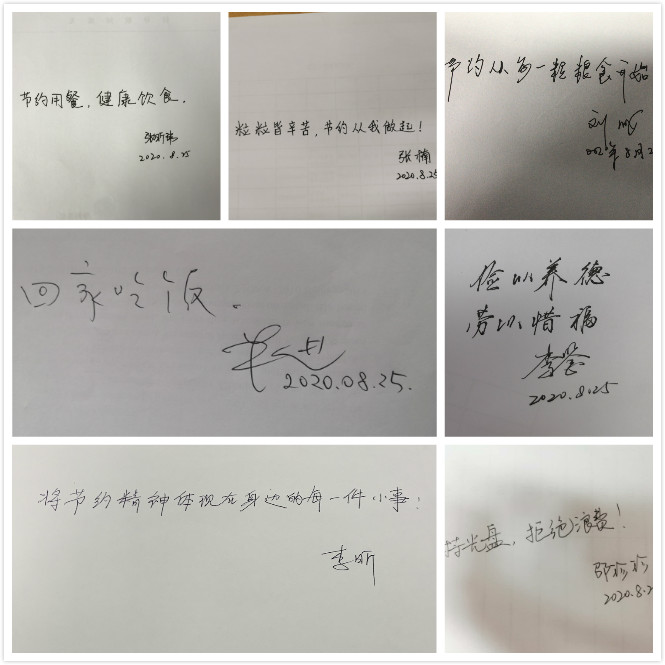 节约用餐，健康饮食。
2020.8.25
粒粒皆辛苦，节约从我做起！
张楠
2020.8.25
节约从每一粒粮食开始
刘
回家吃饭。
2020.08.25.
俭以养德
劳以惜福
李
2020.8.25
将节约精神体现在身边的每一件小事！
李昕
持光盘，拒绝浪费！
邵珍珍
2020.8.2